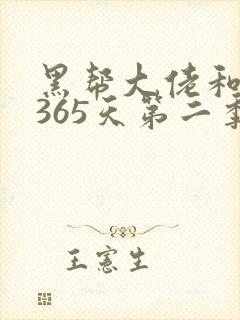 黑帮大佬和
365天第二季
王宪生